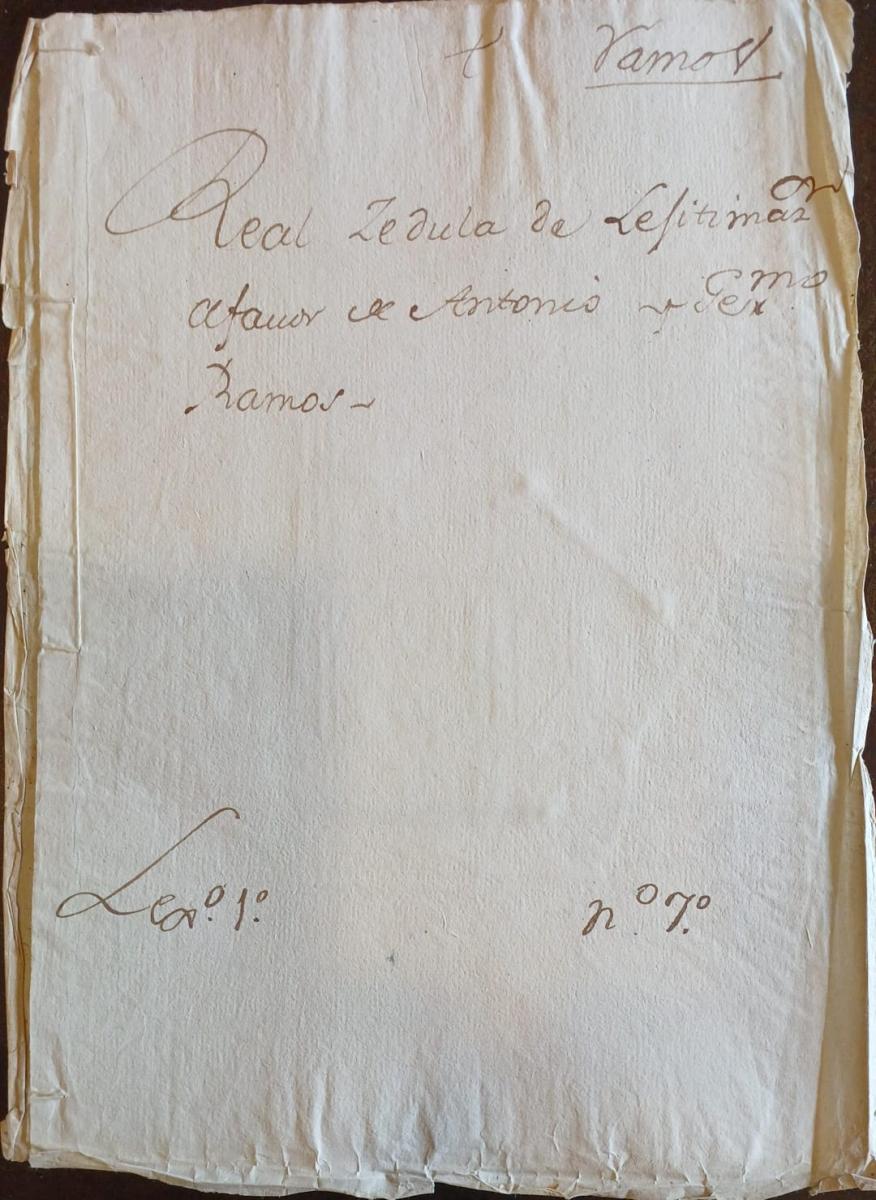 † Ramos
Real Zedula de Lesitimaz.n
afauor de Antonio y Ger.mo
Ramos
Leg.o 1.o n.o 7.o